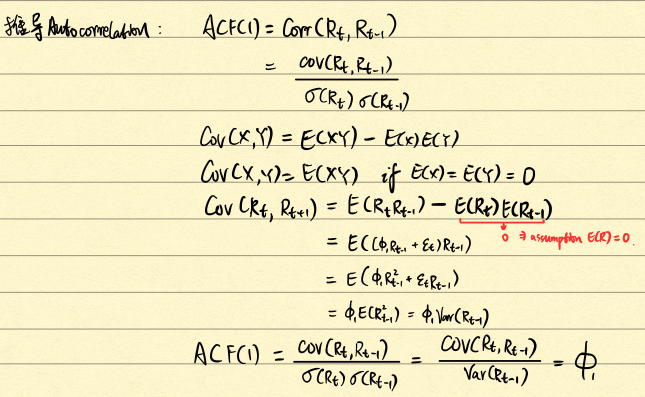 推导 Autocorrelation : ACF(1) = Corr(Rₜ, Rₜ₋₁)
= cov(Rₜ, Rₜ₋₁) / σ(Rₜ) σ(Rₜ₋₁)
Cov(X,Y) = E(XY) − E(X)E(Y)
Cov(X,Y) = E(XY) if E(X) = E(Y) = 0
Cov(Rₜ, Rₜ₊₁) = E(RₜRₜ₋₁) − E(Rₜ)E(Rₜ₋₁)
0 ⇒ assumption E(R) = 0.
= E((ϕ₁Rₜ₋₁ + εₜ)Rₜ₋₁)
= E(ϕ₁R²ₜ₋₁ + εₜRₜ₋₁)
= ϕ₁E(R²ₜ₋₁) = ϕ₁Var(Rₜ₋₁)
ACF(1) = cov(Rₜ, Rₜ₋₁) / σ(Rₜ) σ(Rₜ₋₁) = cov(Rₜ, Rₜ₋₁) / Var(Rₜ₋₁) = ϕ₁